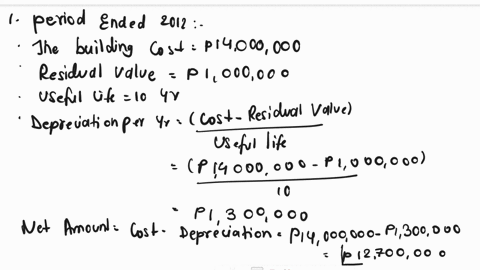 1. period Ended 2012 :-
• The building Cost = P14,000,000
• Residual Value = P1,000,000
• Useful life = 10 Yr
• Depreciation per Yr = (Cost - Residual Value)
Useful life
= (P14000,000 - P1,000,000)
10
= P1,300,000
Net Amount = Cost - Depreciation = P14,000,000 - P1,300,000
= P12,700,000